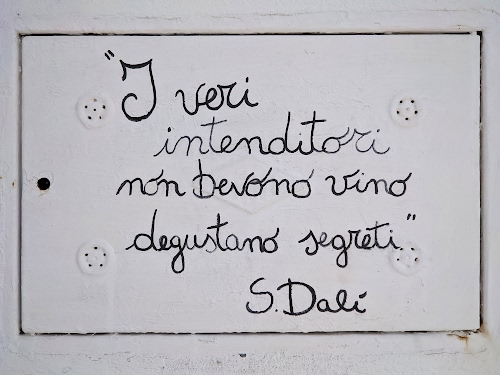 "I veri
intenditori
non bevono vino
degustano segreti."
S. Dalí